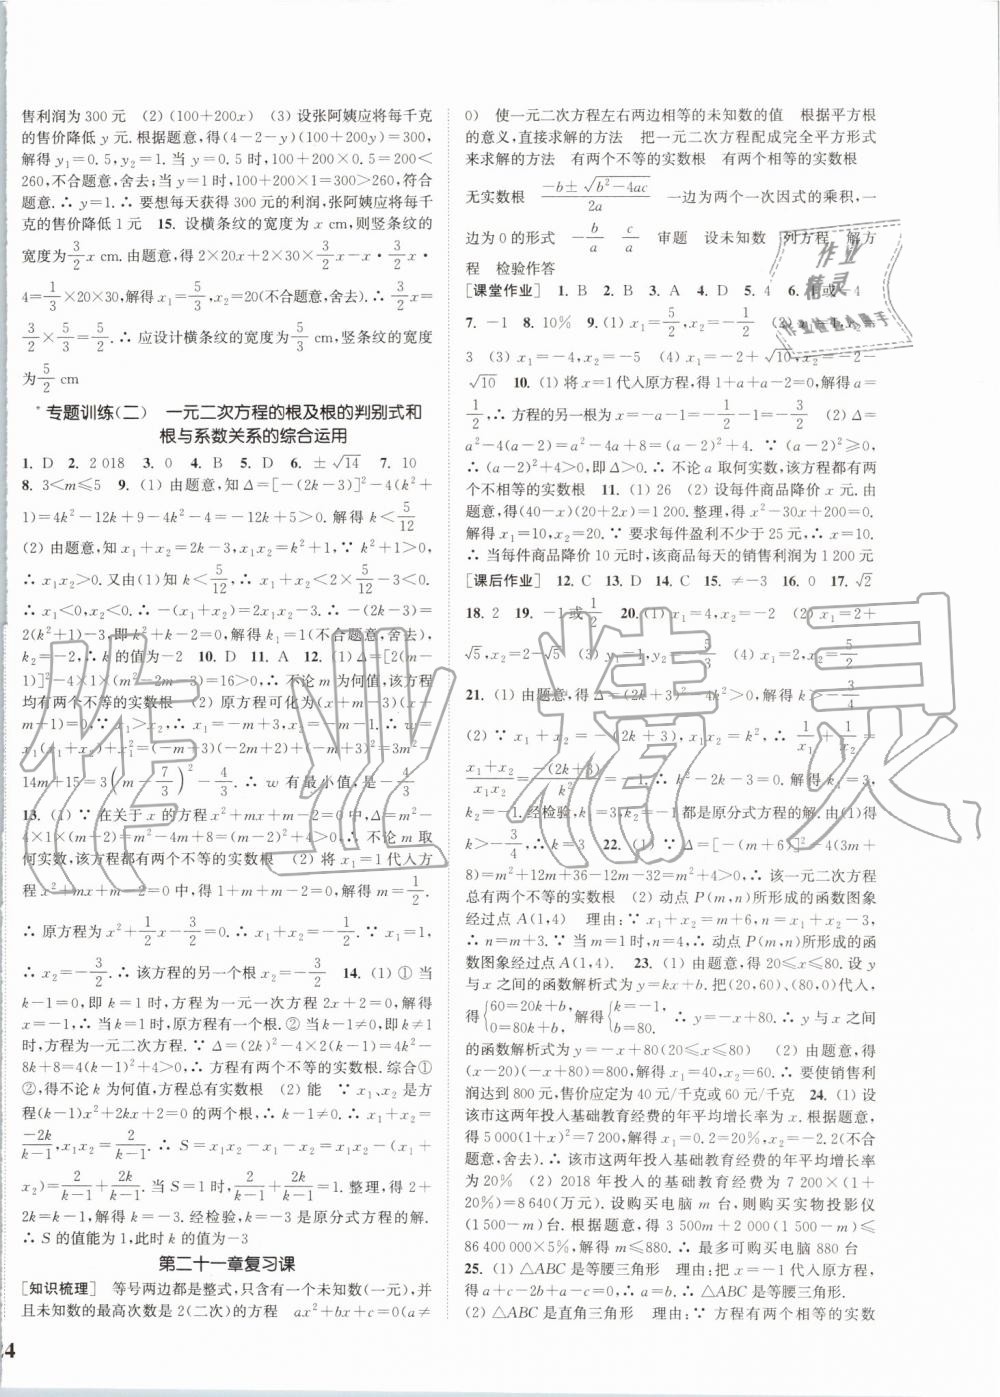 售利润为 300 元　(2) (100+200x)　(3) 设张阿姨应将每千克
的售价降低 y 元. 根据题意,得(4-2-y)(100+200y)=300,
解得 y₁=0.5,y₂=1. 当 y=0.5 时,100+200×0.5=200<
260,不合题意,舍去;当 y=1 时,100+200×1=300>260,符合
题意. ∴ y=1. ∴ 要想每天获得 300 元的利润,张阿姨应将每千
克的售价降低 1 元　15. 设横条纹的宽度为 x cm,则竖条纹的
宽度为 3/2 x cm. 根据题意,得 2×20x+2×30×3/2 x-x·3/2 x·
4=1/3×20×30,解得 x₁=5/3,x₂=20(不合题意,舍去). ∴ 5/3×
3/2=5/2. ∴ 应设计横条纹的宽度为 5/3 cm,竖条纹的宽度
为 5/2 cm
*专题训练(二)　一元二次方程的根及根的判别式和
根与系数关系的综合运用
1. D　2. 2 018　3. 0　4. B　5. D　6. ±√14　7. 10
8. 3<m≤5　9. (1) 由题意,知 Δ=[-(2k-3)]²-4(k²+
1)=4k²-12k+9-4k²-4=-12k+5>0. 解得 k<5/12
(2) 由题意,知 x₁+x₂=2k-3,x₁x₂=k²+1,∵ k²+1>0,
∴ x₁x₂>0. 又由(1)知,k<5/12,∴ x₁+x₂=2k-3<0.
∴ x₁<0,x₂<0. ∴ -(x₁+x₂)=2x₁x₂-3. ∴ -(2k-3)=
2(k²+1)-3,即 k²+k-2=0. 解得 k₁=1(不合题意,舍去),
k₂=-2,∴ k 的值为-2　10. D　11. A　12. (1) Δ=[2(m-
1)]²-4×1×(m²-2m-3)=16>0,∴ 不论 m 为何值,该方程
均有两个不等的实数根　(2) 原方程可化为(x+m-3)(x+
m+1)=0.
14m+15=3(m-7/3)²-4/3. ∴ w 有最小值,是-4/3
13. (1) ∵ 在关于 x 的方程 x²+mx+m-2=0 中,Δ=m²-
4×1×(m-2)=m²-4m+8=(m-2)²+4>0,∴ 不论 m 取
何实数,该方程都有两个不等的实数根　(2) 将 x₁=1 代入方
程 x²+mx+m-2=0 中,得 1+m+m-2=0,解得 m=1/2.
∴ 原方程为 x²+1/2 x-3/2=0. ∴ x₁+x₂=-1/2. ∵ x₁=1,
∴ x₂=-3/2. ∴ 该方程的另一个根 x₂=-3/2　14. (1) ① 当
k-1=0,即 k=1 时,方程为一元一次方程 2x+2=0,解得
x=-1,∴ 当 k=1 时,原方程有一个根. ② 当 k-1≠0,即 k≠1
时,方程为一元二次方程. ∵ Δ=(2k)²-4×2(k-1)=4k²-
8k+8=4(k-1)²+4>0,∴ 方程有两个不等的实数根. 综合①
②,得不论 k 为何值,方程总有实数根　(2) 能　∵ x₁、x₂ 是方
程(k-1)x²+2kx+2=0 的两个根,∴ k≠1. ∴ x₁+x₂=
-2k/(k-1),x₁x₂=2/(k-1). ∴ S=x₁x₂-x₁-x₂=x₁x₂-(x₁+
x₂)=2/(k-1)+2k/(k-1). 当 S=1 时,2/(k-1)+2k/(k-1)=1. 整理,得 2+
2k=k-1. 解得 k=-3. 经检验,k=-3 是原分式方程的解.
∴ S 的值能为 1,此时 k 的值为-3
第二十一章复习课
[知识梳理]　等号两边都是整式,只含有一个未知数(一元),并
且未知数的最高次数是 2(二次)的方程　ax²+bx+c=0(a≠
24
0)　使一元二次方程左右两边相等的未知数的值　根据平方根
的意义,直接求解的方法　把一元二次方程配成完全平方形式
来求解的方法　有两个不等的实数根　有两个相等的实数根
无实数根　(-b±√(b²-4ac))/2a　一边为两个一次因式的乘积,一
边为 0 的形式　-b/a　c/a　审题　设未知数　列方程　解方
程　检验作答
[课堂作业]　1. B　2. B　3. A　4. D　5. 4
7. -1　8. 10%　9. (1) x₁=5/2,x₂=-1/2
3　(3) x₁=-1,x₂=-5　(4) x₁=-2+√10,x₂=-2-
√10　10. (1) 将 x=1 代入原方程,得 1+a+a-2=0. 解得 a=
1/2,∴ 方程的另一根为 x=-a-1=-1/2-1=-3/2　(2) Δ=
a²-4(a-2)=a²-4a+8=(a-2)²+4. ∵ (a-2)²≥0,
∴ (a-2)²+4>0,即Δ>0. ∴ 不论 a 取何实数,该方程都有两
个不相等的实数根　11. (1) 26　(2) 设每件商品降价 x 元. 由
题意,得(40-x)(20+2x)=1200. 整理,得 x²-30x+200=0.
解得 x₁=10,x₂=20. ∵ 要求每件盈利不少于 25 元,∴ x=10.
∴ 当每件商品降价 10 元时,该商品每天的销售利润为 1 200 元
[课后作业]　12. C　13. D　14. C　15. ≠-3　16. 0　17. √2
18. 2　19. -1 或 1/2　20. (1) x₁=4,x₂=-2　(2) x₁=2+
√5,x₂=2-√5
21. (1) 由题意,得 Δ=(2k+3)²-4k²>0. 解得 k>-3/4
k₂=-1. 经检验,k₁=3,k₂=-1 都是原分式方程的解. 由(1)得
k>-3/4,∴ k=3　22. (1) ∵ Δ=[-(m+6)]²-4(3m+
8)=m²+12m+36-12m-32=m²+4>0,∴ 该一元二次方程
总有两个不等的实数根　(2) 动点 P(m,n)所形成的函数图象
经过点 A(1,4)　理由:∵ x₁+x₂=m+6,n=x₁+x₂-3,
∴ n=m+3. ∵ 当 m=1 时,n=4,∴ 动点 P(m,n)所形成的函
数图象经过点 A(1,4).　23. (1) 由题意,得 20≤x≤80. 设 y
与 x 之间的函数解析式为 y=kx+b. 把(20,60)、(80,0)代入,
得{60=20k+b, 0=80k+b, 解得{k=-1, b=80. ∴ y=-x+80. ∴ y 与 x 之间
的函数解析式为 y=-x+80(20≤x≤80)　(2) 由题意,得
(x-20)(-x+80)=800,解得 x₁=40,x₂=60. ∴ 要使销售利
润达到 800 元,售价应定为 40 元/千克或 60 元/千克　24. (1) 设
该市这两年投入基础教育经费的年平均增长率为 x. 根据题意,
得 5 000(1+x)²=7 200,解得 x₁=0.2=20%,x₂=-2.2(不合
题意,舍去). ∴ 该市这两年投入基础教育经费的年平均增长率为
20%　(2) 2018 年投入的基础教育经费为 7 200×(1+
20%)=8 640(万元). 设购买电脑 m 台,则购买实物投影仪
(1 500-m)台. 根据题意,得 3 500m+2 000(1 500-m)≤
86 400 000×5%,解得 m≤880. ∴ 最多可购买电脑 880 台
25. (1) △ABC 是等腰三角形　理由:把 x=-1 代入方程,
得 a+c-2b+a-c=0,∴ a=b. ∴ △ABC 是等腰三角形.
(2) △ABC 是直角三角形　理由:∵ 方程有两个相等的实数
作业精灵